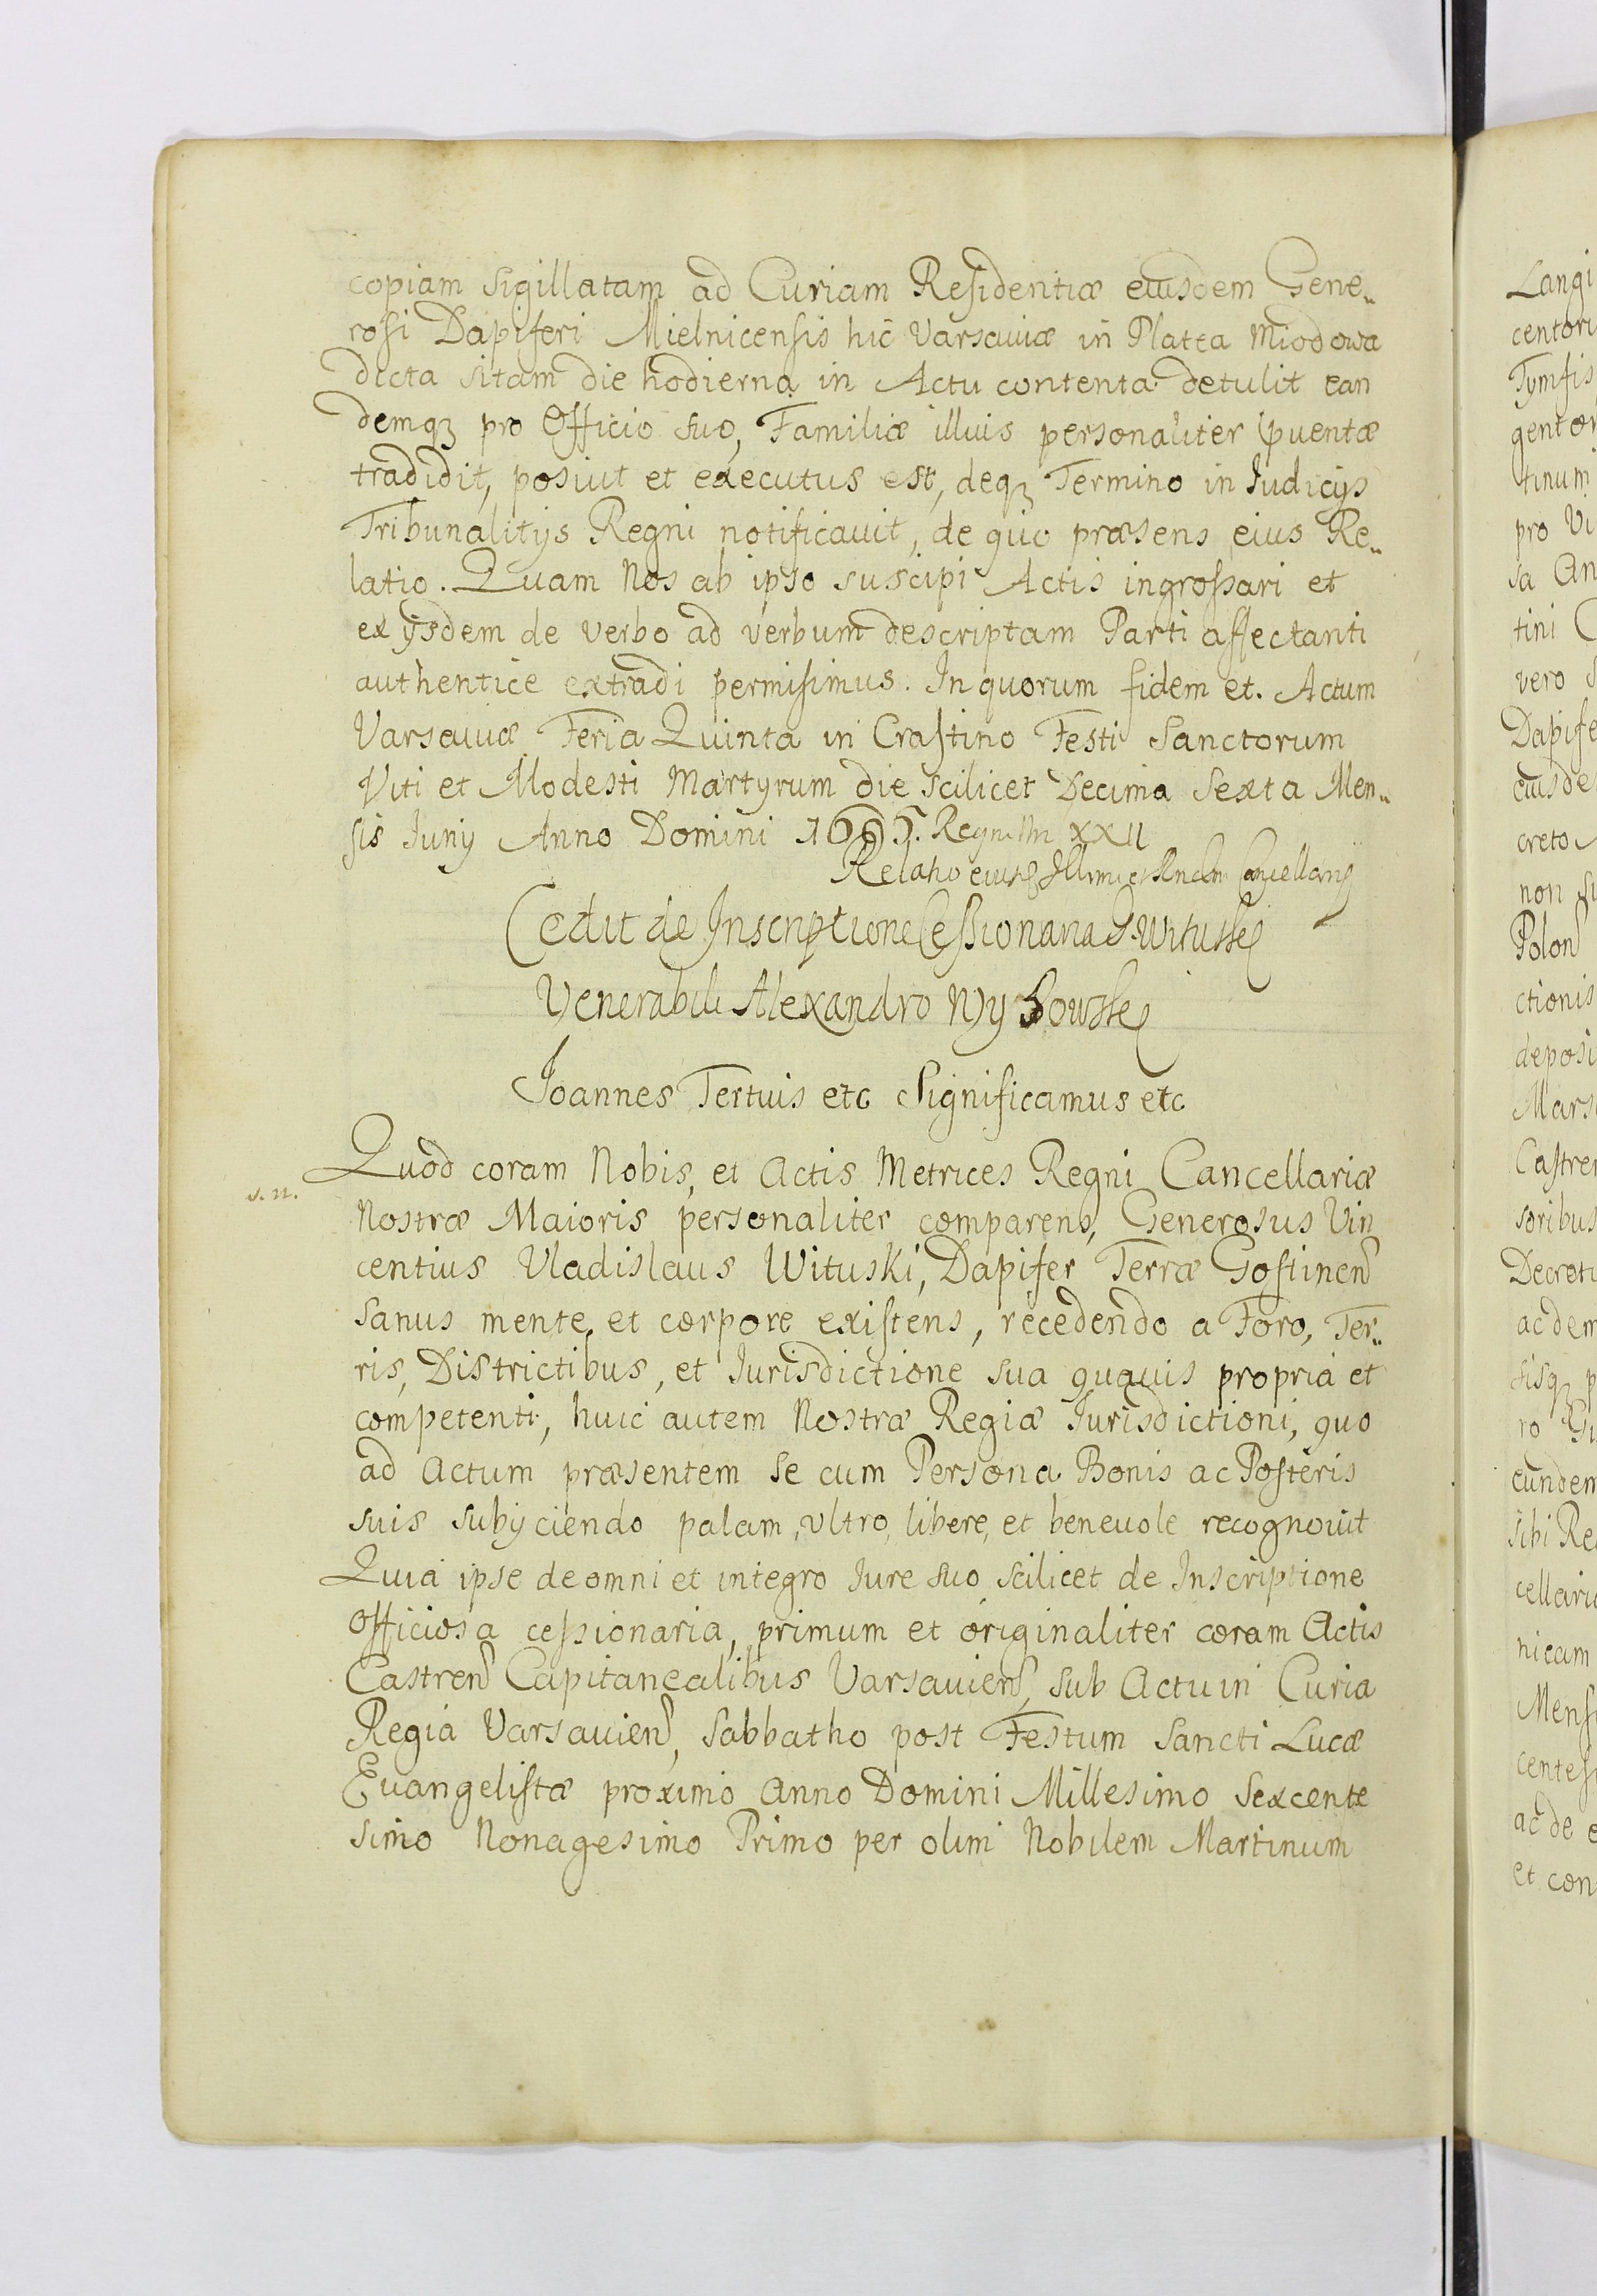 copiam sigillatam ad Curiam Residentiæ eiusdem Gene„
rosi Dapiferi Mielnicensis hic Varsaviæ in Platea Miodowa
dicta sitam die hodierna in Actu contenta detulit ean
demqꝫ pro Officio suo, Familiæ illius personaliter
tradidit, posiuit et executus est, deqꝫ Termino in Iudicijs
Tribunalitijs Regni notificauit, de quo præsens eius Re„
latio. Quam Nos ab ipso suscipi Actis ingrossari et
ex ijsdem de verbo ad verbum descriptam Parti affectanti
authentice extradi permisimus. In quorum fidem et. Actum
Varsauiæ Feria Quinta in Crastino Festi Sanctorum
Viti et Modesti Martyrum die scilicet Decima Sexta Men„
sis Iunij Anno Domini 1695. Regni XXII
Relatio eiusdꝫ Cancellarij
Cedit de Inscriptione Cessionaria G. Wituski
Venerabili Alexandro Wyhowski
Ioannes Tertius etc Significamus etc
Quod coram Nobis, et Actis Metrices Regni Cancellariæ
s. n.
Nostræ Maioris personaliter comparens, Generosus Vin
centius Vladislaus Wituski, Dapifer Terræ Gostinens
sanus mente, et corpore existens, recedendo a Foro, Ter„
ris, Districtibus, et Iurisdictione sua quauis propria et
competenti, huic autem Nostræ Regiæ Iurisdictioni, quo
ad Actum præsentem se cum Persona Bonis ac Posteris
suis subijciendo palam, vltro, libere, et beneuole recognouit
Quia ipse de omni et integro Iure suo scilicet de Inscriptione
Officiosa cessionaria, primum et originaliter coram Actis
Castrens Capitanealibus Varsauiens, sub Actu in Curia
Regia Varsauiens, Sabbatho post Festum Sancti Lucæ
Euangelistæ proximo Anno Domini Millesimo Sexcente
simo Nonagesimo Primo per olim Nobilem Martinum
Langi
centoru
Tymfis
gentor
tinum
pro Vi
sa An
tini C
vero S
Dapife
eiusde
creto
non su
Polons
ctionis
deposi
Mars
Castren
soribus
Decreti
ac dem
sisqꝫ p
ro Gi
eundem
sibi Re
cellari
nicam
Mensi
centesi
ac de e
et con